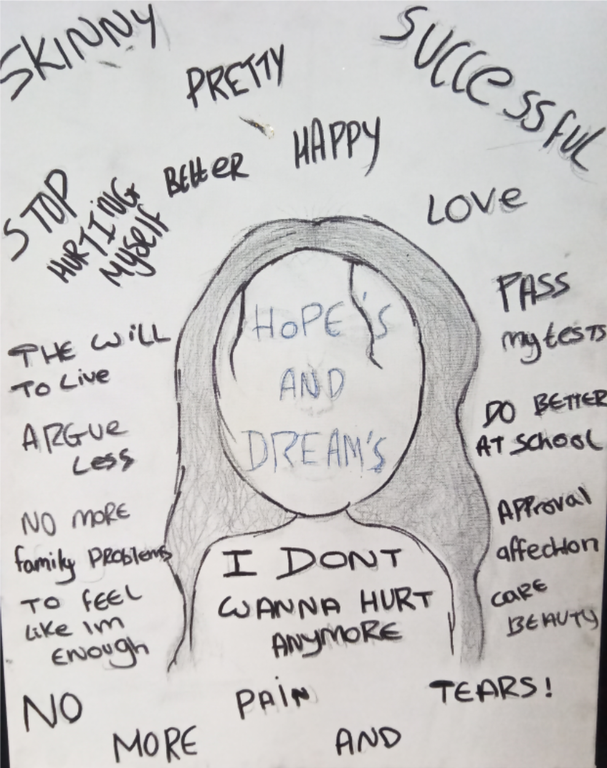 SKINNY
PRETTY
SUCCESSFUL
HAPPY
BEtteR
STOP
HURTING
MYSElF
LOVe
THE WiLL
To Live
ARGUe
Less
NO MORE
family PROBlems
TO feel
like Im
ENOUGH
HOPE'S
AND
DREAM'S
PASS
my tests
DO BETTER
AT SCHOOL
Approval
affection
CARE
BEAUTY
I DONT
WANNA HURT
ANYMORE
NO
MORE
PAiN
AND
TEARS!